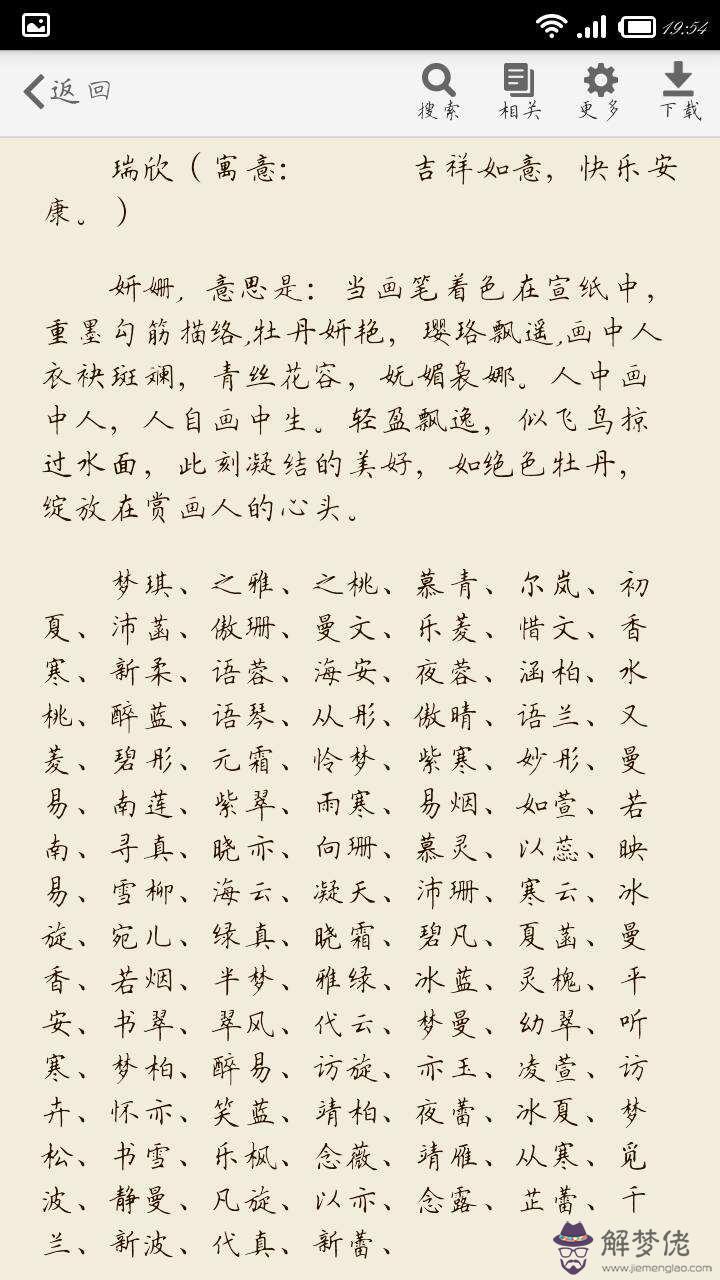 19:54
返回
搜索 相关 更多 下载
瑞欣（寓意： 吉祥如意，快乐安
康。）
妍姗，意思是：当画笔着色在宣纸中，
重墨勾筋描络,牡丹妍艳，璎珞飘遥,画中人
衣袂斑斓，青丝花容，妩媚袅娜。人中画
中人，人自画中生。轻盈飘逸，似飞鸟掠
过水面，此刻凝结的美好，如绝色牡丹，
绽放在赏画人的心头。
梦琪、之雅、之桃、慕青、尔岚、初
夏、沛菡、傲珊、曼文、乐菱、惜文、香
寒、新柔、语蓉、海安、夜蓉、涵柏、水
桃、醉蓝、语琴、从彤、傲晴、语兰、又
菱、碧彤、元霜、怜梦、紫寒、妙彤、曼
易、南莲、紫翠、雨寒、易烟、如萱、若
南、寻真、晓亦、向珊、慕灵、以蕊、映
易、雪柳、海云、凝天、沛珊、寒云、冰
旋、宛儿、绿真、晓霜、碧凡、夏菡、曼
香、若烟、半梦、雅绿、冰蓝、灵槐、平
安、书翠、翠风、代云、梦曼、幼翠、听
寒、梦柏、醉易、访旋、亦玉、凌萱、访
卉、怀亦、笑蓝、靖柏、夜蕾、冰夏、梦
松、书雪、乐枫、念薇、靖雁、从寒、觅
波、静曼、凡旋、以亦、念露、芷蕾、千
兰、新波、代真、新蕾、
解梦佬
www.jiemenglao.com